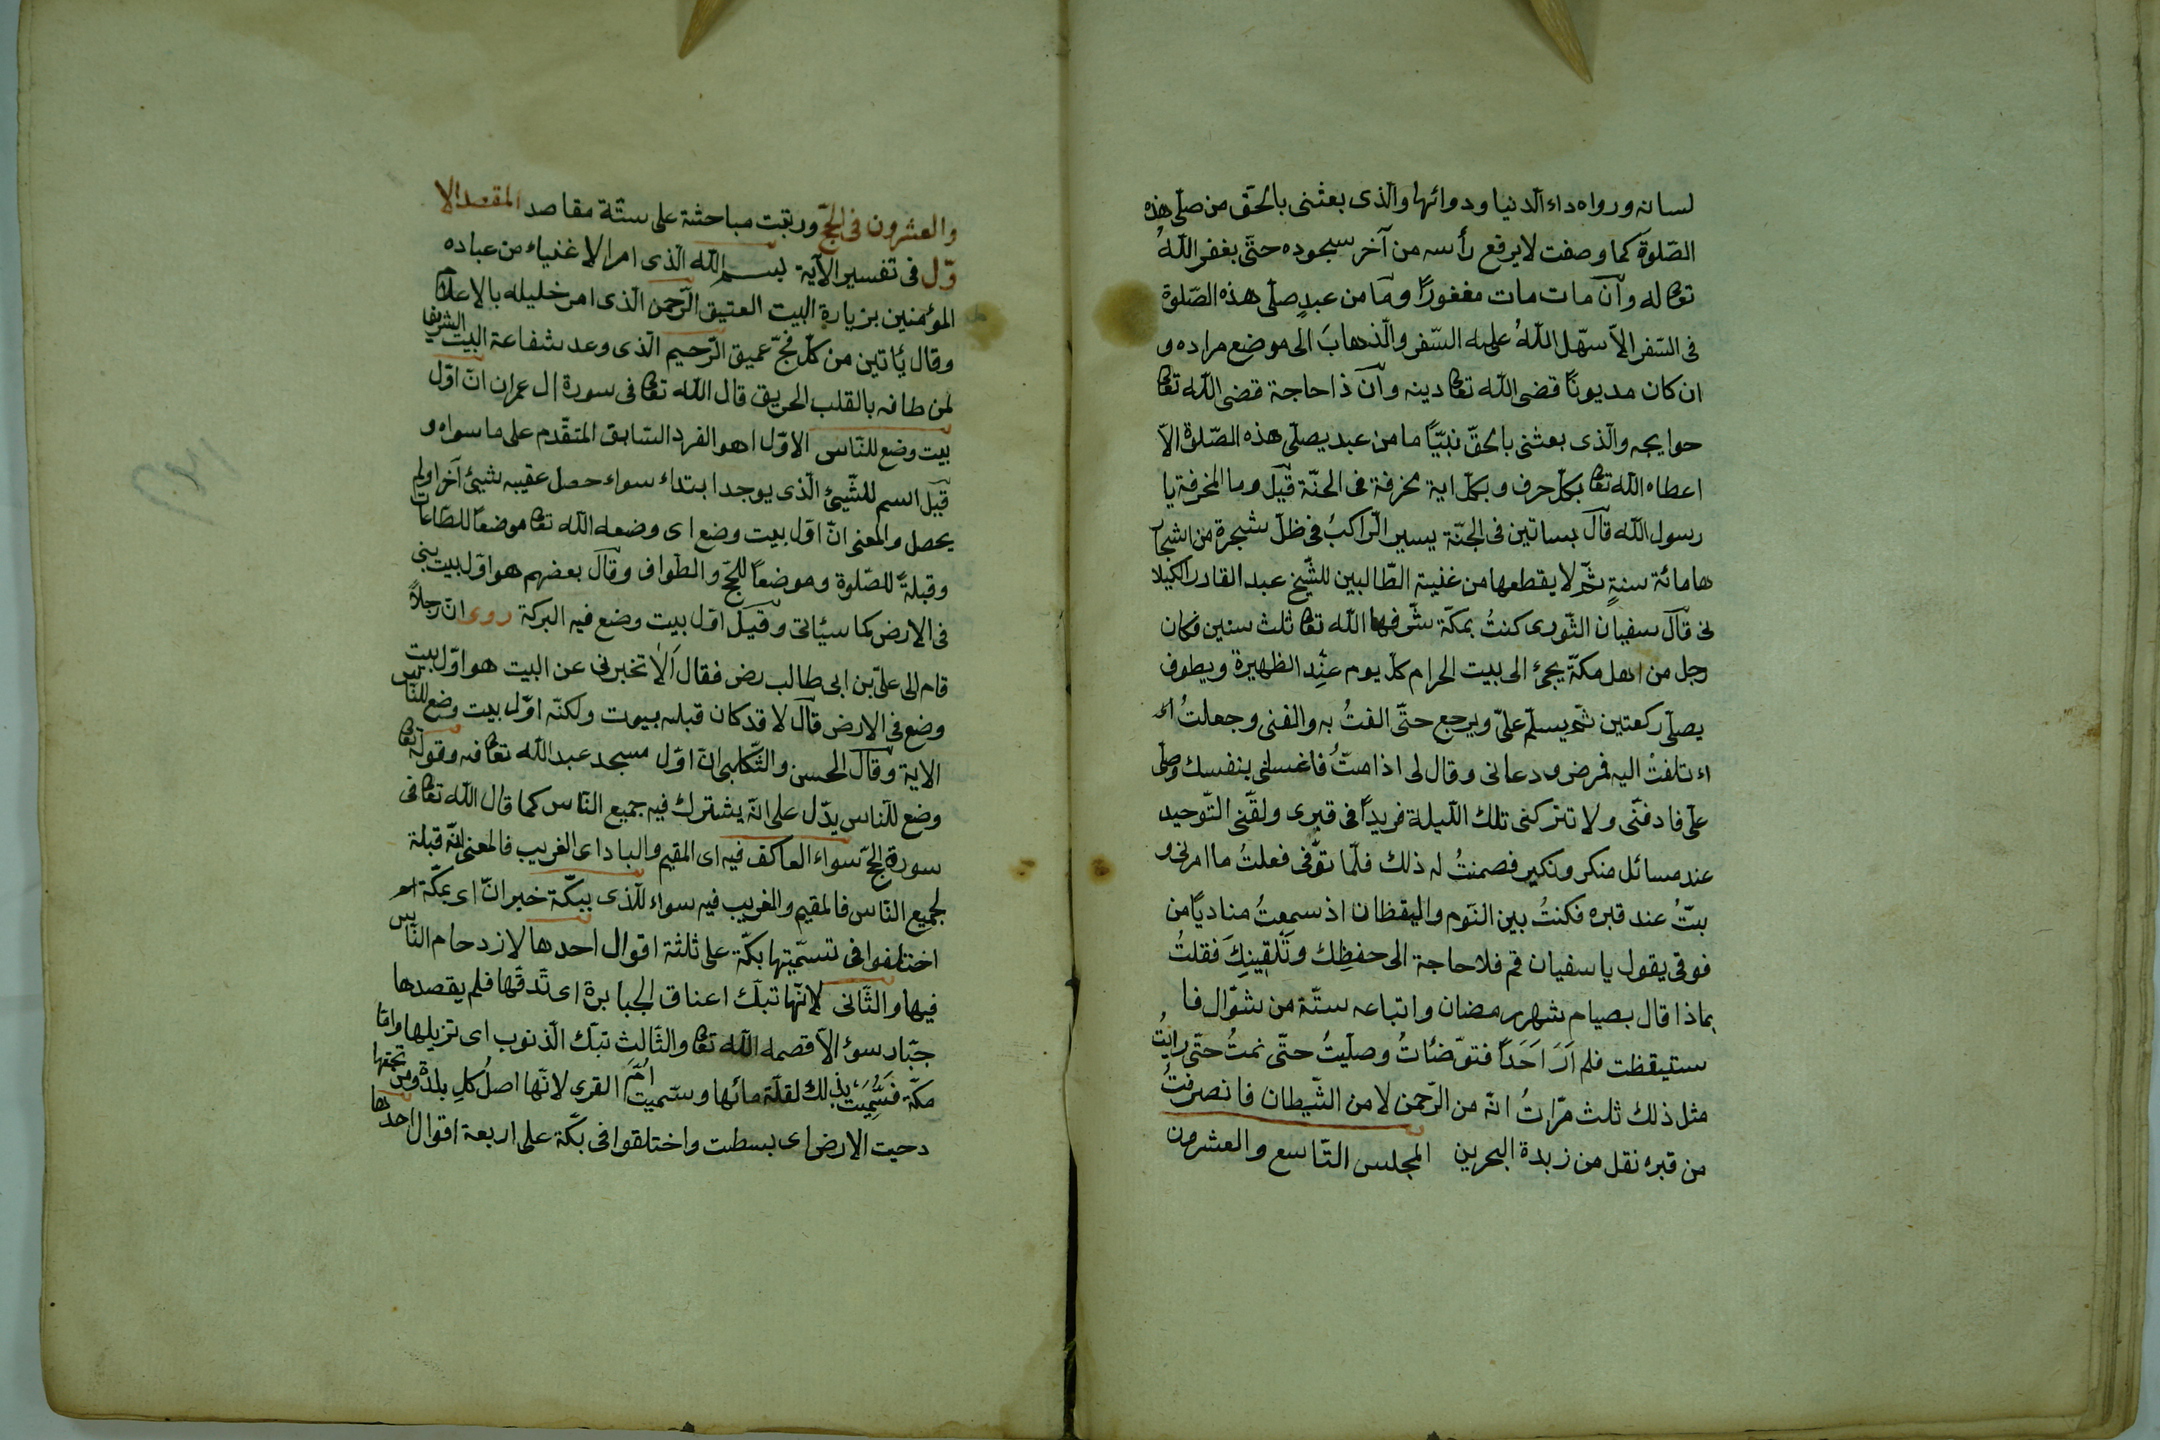 لسانه ورواه داء الدنيا ودوائها والّذى بعثنى بالحقّ من صلّى هذه
الصّلوة كما وصفت لا يرفع رأسه من آخر سجوده حتّى يغفر اللّهُ
تعا له وآن مات مات مغفورًا ومَا من عبدٍ صلّى هذه الصّلوة
فى السّفر الاّ سهّل اللّهُ عليه السّفر والّذهابَ الى موضع مراده و
ان كان مديونًا قضى اللّه تعا دينه وآن ذا حاجة قضى اللّه تعا
حوايجه والّذى بعثنى بالحقّ نبيّاً ما من عبد يصلّى هذه الصّلوة الاّ
اعطاه اللّه تعا بكلّ حرف وبكلّ اية مخرفة فى الجنّة قيل وما المخرفة يا
رسول اللّه قال بساتين فى الجنّة يسير الرّاكبُ فى ظلّ شجرة من اشجار
ها مائة سنةٍ ثمّ لا يقطعها من غنية الطّالبين للشّيخ عبد القادر الكيلا
نى قال سفيان الثّورى كنتُ بمكّة شرّفها اللّه تعا ثلث سنين فكان
رجل من اهل مكّة يجئ الى بيت الحرام كلّ يوم عنِد الظهيرة ويطوف
يصلّى ركعتين ثمّ يسلّم علىّ ويرجع حتّى الفتُ به والفنى وجعلتُ
تلفتُ اليه فمرض ودعانى وقال لى اذا متُّ فاغسلنى بنفسك وصلّى
علىّ فادفنّى ولا تتركنى تلك اللّيلة فريداً فى قبرى ولقّنى التّوحيد
عند مسائل منكر ونكير فضمنتُ له ذلك فلمّا توّفى فعلتُ ما امرنى و
بتّ عند قبره فكنتُ بين النّوم واليقظان اذ سمعتُ منادياً من
فوقى يقول يا سفيان قم فلا حاجة الى حفظِك وتَلْقينِكَ فقلتُ
بماذا قال بصيام شهر رمضان واتباعه ستّة من شوّال فا
ستيقظت فلم اَرَ اَحَداً فتوّضئاتُ وصلّيتُ حتّى نمتُ حتّى رايتُ
مثل ذلك ثلث مرّاتُ انّه من الرّحمن لا من الشّيطان فانصرفتُ
من قبره نقل من زبدة البحرين المجلس التّاسع والعشرون
والعشرون فى الحجّ ورتبت مباحثة على ستّة مقاصد المقصد الا
وّل فى تفسير الآية بسم اللّه الّذى امر الاغنياء من عباده
المؤمنين بزيارة البيت العتيق الرّحمن الّذى امر خليله بالاعلام
وقال يأتين من كلّ فجّ عميق الرّحيم الّذى وعد شفاعة البيت الشريف
لمن طافه بالقلب الحريق قال اللّه تعا فى سورة ال عمران انّ اوّل
بيت وضع للنّاس الاوّل اهو الفرد السّابق المتقّدم على ما سواه و
قيل اسم للشّيئ الّذى يوجد ابتداء سواء حصل عقيبه شيئ آخر اولم
يحصل والمعنى انّ اوّل بيت وضع اى وضعه اللّه تعا موضعاً للطّاعات
وقبلةً للصّلوة وموضعاً للحجّ والطّواف وقال بعضهم هو اوّل بيت بنى
فى الارض كما سئاتى وقيل اوّل بيت وضع فيه البركة روى انّ رجلاً
قام الى علىّ بن ابى طالب رض فقال اَلاٰ تخبرنى عن البيت هو اوّل بيت
وضع فى الارض قال لا قد كان قبله بيوت ولكنّه اوّل بيت وضع للنّاس
الاية وقال الحسن والكلبى انّ اوّل مسجد عبد اللّه تعا فيه وقوله تعا
وضع للنّاس يدّل على انّه يشترك فيه جميع النّاس كما قال اللّه تعا فى
سورة الحجّ سواء العاكف فيه اى المقيم والباد اى الغريب فالمعنى انّه قبلة
لجميع النّاس فالمقيم والغريب فيه سواء للّذى ببكّة خبر انّ اى بمكّة
اختلفوا فى تسمّيتها بكّة على ثلثة اقوال احدها لازدحام النّاس
فيها والثّانى لانّها تبكّ اعناق الجبابرة اى تَدقّها فلم يقصدها
جبّار سوء الاّ قصمه اللّه تعا والثّالث تبكّ الذّنوب اى تزيلها وامّا
مكّة فَسُّمِيَت بذلك لقلّة مائها وسمّيت اُمّ القرى لانّها اصلُ كلِ بلدة ومن تحتها
دحيت الارض اى بسطت واختلفوا فى بكّة على اربعة اقوال احدها